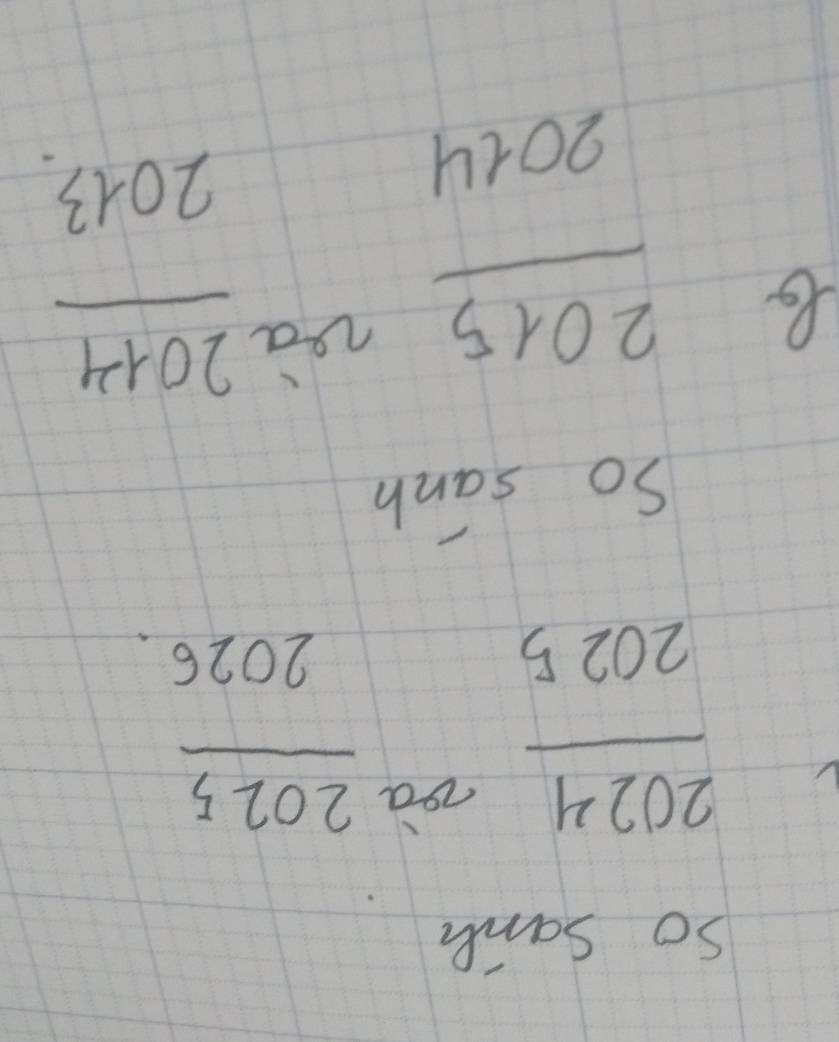 so sánh
2024 và 2025
2025 2026.
So sánh
b 2015 và 2014
2014 2013.